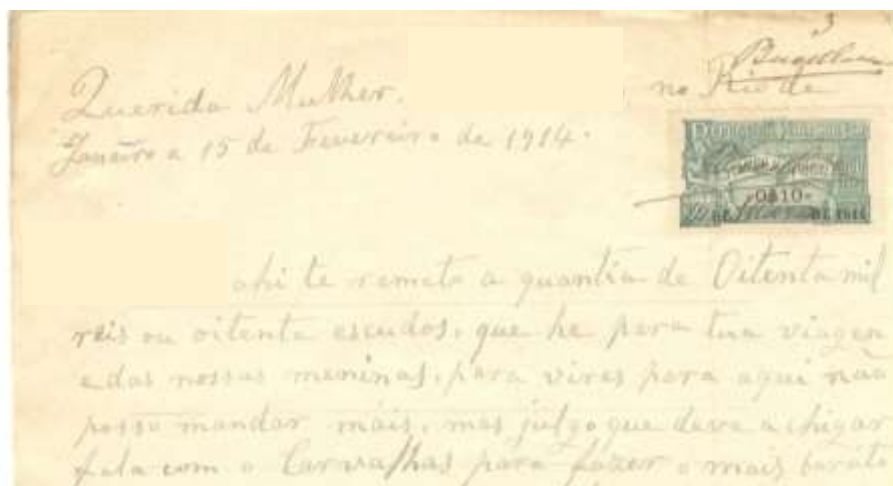 3
Querida Mulher. no Rio de
Janeiro a 15 de Fevereiro de 1914.
0$10
DE 1911
ahi te remeto a quantia de Oitenta mil
reis ou oitenta escudos, que he para tua viagen
e das nossas meninas, para vires para aqui não
posso mandar mais, mas julgo que deve a chigar
fala com o Carvalhas para fazer o mais baráto